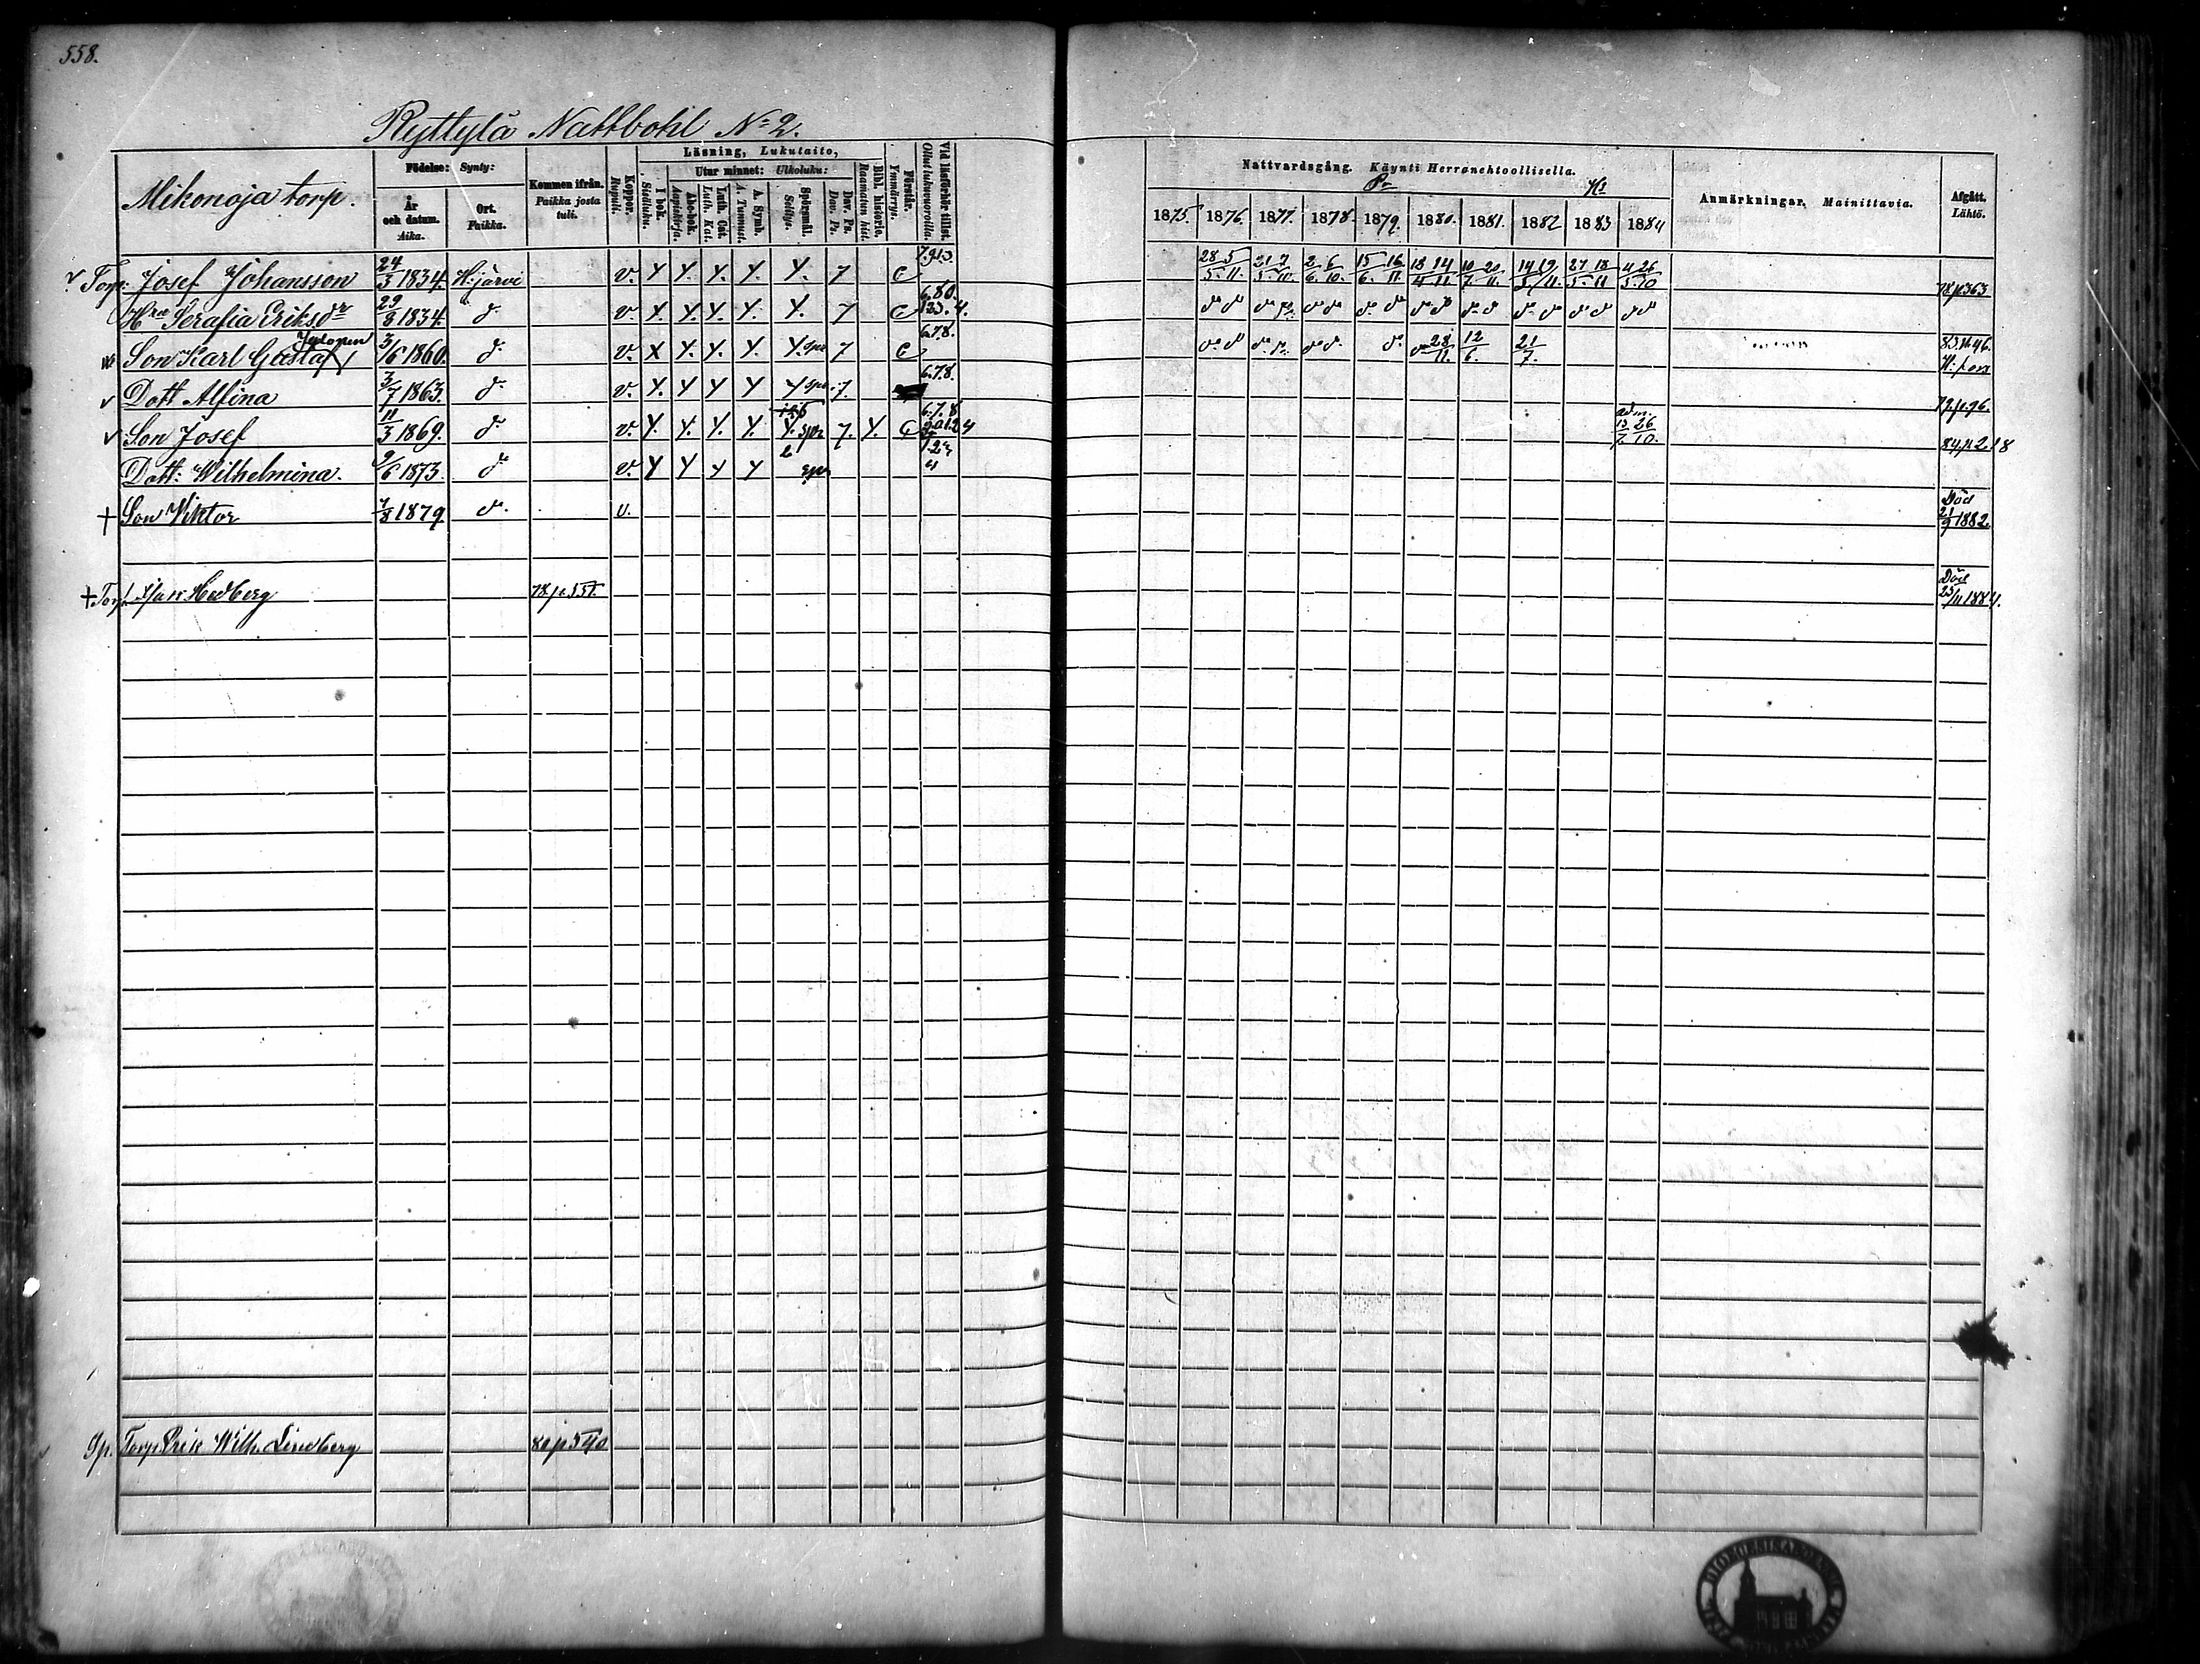 558.
Ryttylä Nattbohl No 2.
Mikonoja torp
Födelse: Synty:
År och datum. Aika.
Ort. Paikka.
Kommen ifrån. Paikka josta tuli.
Koppor. Rupuli.
Läsning, Lukutaito,
I bok. Sisäluku.
Utur minnet: Ulkoluku:
Abc-bok. Aapiskirja.
Luth. Cat. Luth. Kat.
A. Symb. A. Tunnust.
Spörsmål. Selitys.
Dav. Ps. Dav. Ps.
Bibl. historie. Raamatun hist.
Förstår. Ymmärrys.
Vid läsförhör tillst. Ollut lukuvuoroilla.
Nattvardsgång. Käynti Herranehtoollisella.
1875. 1876. 1877. 1878. 1879. 1880. 1881. 1882 1883 1884
Anmärkningar. Mainittavia.
Afgått. Lähtö.
v Torp. Josef Johansson 24/3 1834. H:järvi v. 7 C 7.9.13. 28/5. 5/11. 21/5 7/10. 2/6. 6/10. 15/6. 16/11. 18/4 14/11. 10/7. 20/11. 27/5. 18/11 4/5. 26/10 78.p363
Hru Serafia Eriksdr 29/8 1834. d. v. 7 C 6.80. 123.4.
Son Karl Gustaf 3/6 1860. d. v. 7 C 6.78. 28/11. 12/6. 21/7. 83.p.46. H:fors
v Dott Alfina 3/7 1863. d. v. 7. 6.7.8. 79.p.96.
v Son Josef 11/3 1869. d. v. 7. C 6.7.8 adm. 13/7. 26/10. 84.p.218
Dott: Wilhelmina. 9/6 1873. d. v.
† Son Viktor 7/8 1879. d. v. Död 21/9 1882.
† Torp. Hedberg 78.p.551. Död 23/11 1884.
Torp. Erik Wilh. Lindberg 80.p540